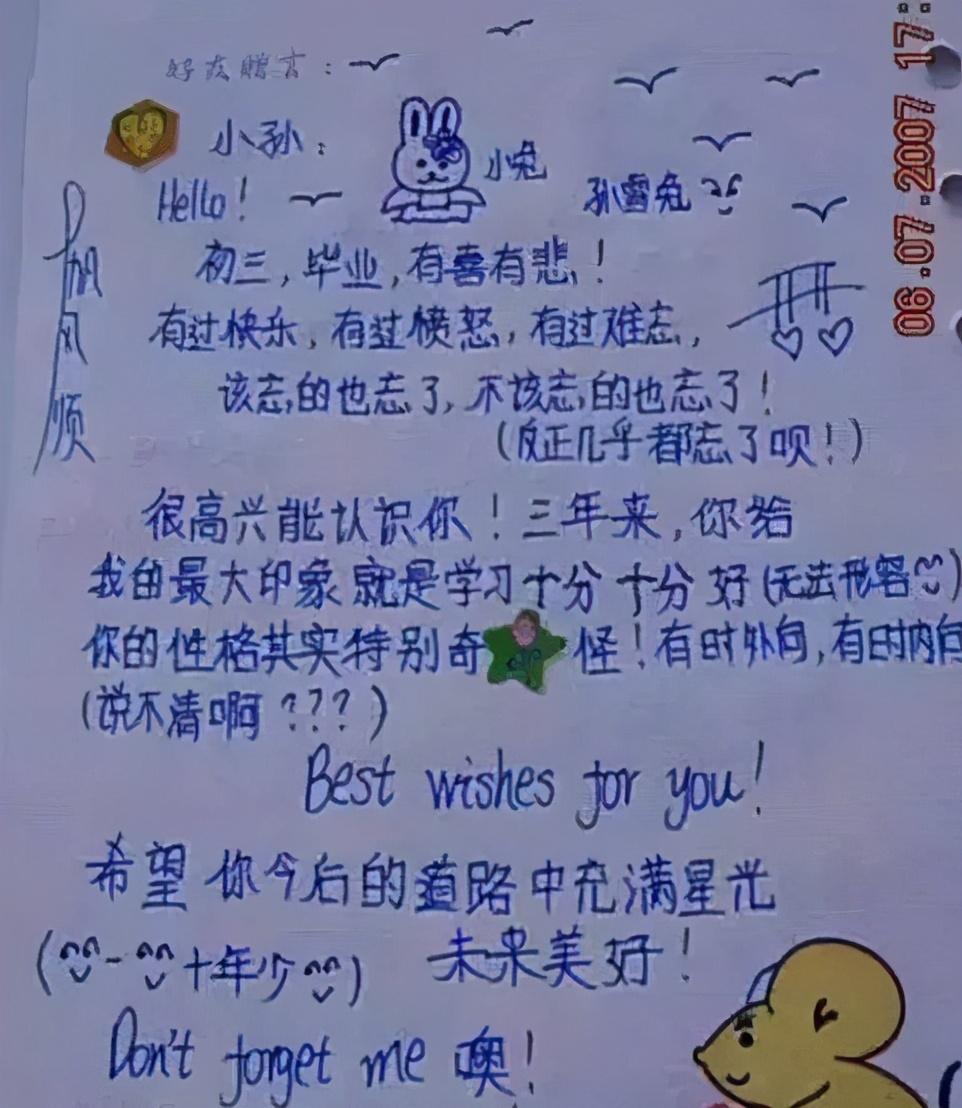 好友赠言：
小孙：
小兔
Hello!
孙雪兔
一帆风顺
初三，毕业，有喜有悲！
有过快乐，有过愤怒，有过难忘，
该忘的也忘了，不该忘的也忘了！
（反正几乎都忘了呗！）
很高兴能认识你！三年来，你给
我的最大印象就是学习十分十分好（无法形容）
你的性格其实特别奇怪！有时外向，有时内向
（说不清啊？？？）
Best wishes for you!
希望你今后的道路中充满星光
（十年少） 未来美好！
Don't forget me 噢！
06.07.2007 17: